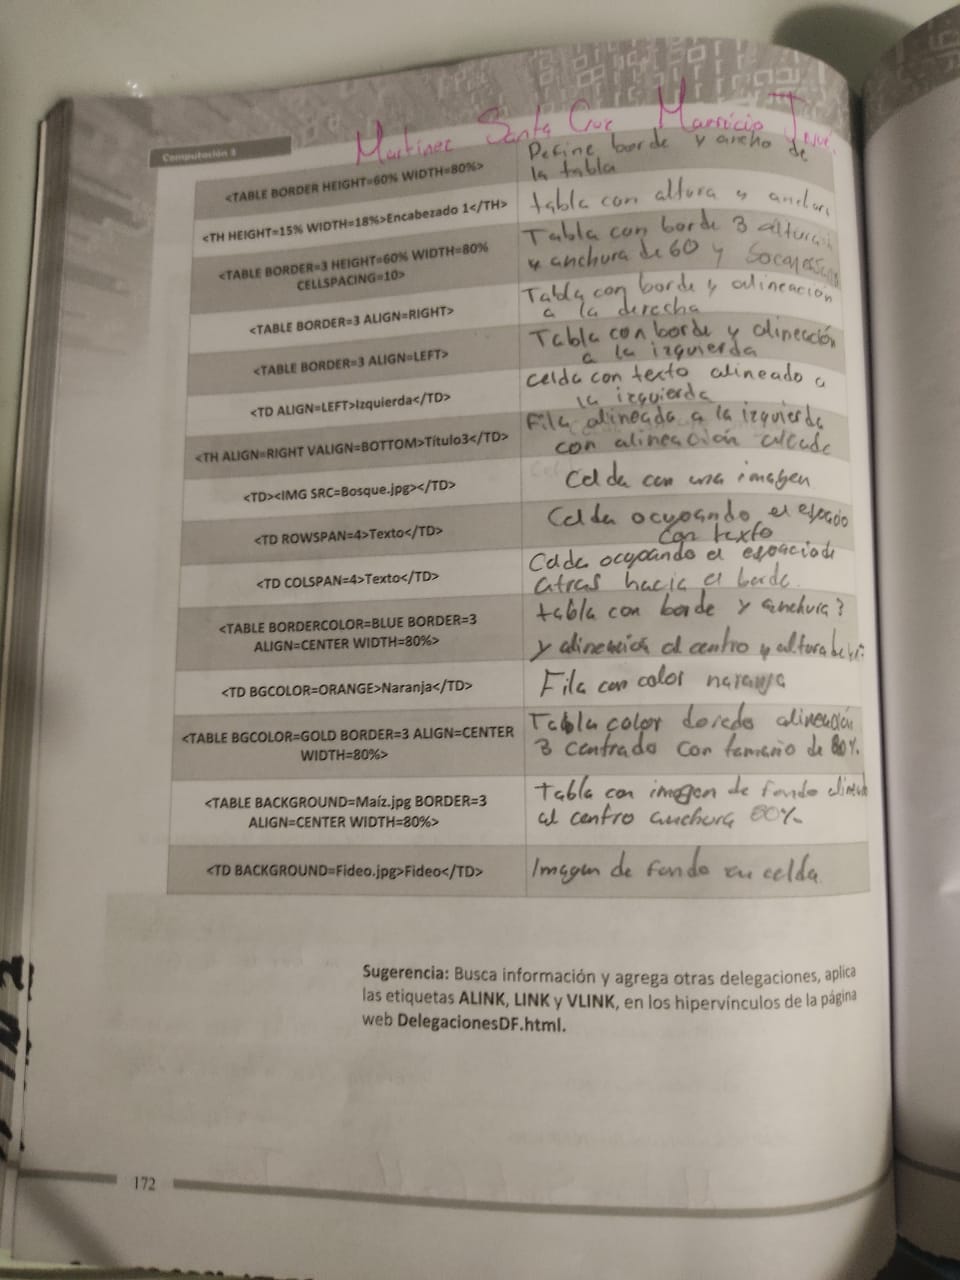 Computación 3
Martinez Santa Cruz Mauricio
<TABLE BORDER HEIGHT=60% WIDTH=80%>
Define borde y ancho de
la tabla
<TH HEIGHT=15% WIDTH=18%>Encabezado 1</TH>
tabla con altura y
<TABLE BORDER=3 HEIGHT=60% WIDTH=80%
CELLSPACING=10>
Tabla con borde 3 altura
y anchura de 60 y
<TABLE BORDER=3 ALIGN=RIGHT>
Tabla con borde y alineación
a la derecha
<TABLE BORDER=3 ALIGN=LEFT>
Tabla con borde y alineación
a la izquierda
<TD ALIGN=LEFT>Izquierda</TD>
celda con texto alineado a
la izquierda
<TH ALIGN=RIGHT VALIGN=BOTTOM>Título3</TD>
Fila alineada a la izquierda
con alineación
<TD><IMG SRC=Bosque.jpg></TD>
Celda con una imagen
<TD ROWSPAN=4>Texto</TD>
Celda ocupando el espacio
con texto
<TD COLSPAN=4>Texto</TD>
Celda ocupando el espacio de
atras hacia el borde.
<TABLE BORDERCOLOR=BLUE BORDER=3
ALIGN=CENTER WIDTH=80%>
tabla con borde y anchura 3
y alineación al centro y altura
<TD BGCOLOR=ORANGE>Naranja</TD>
Fila con color naranja
<TABLE BGCOLOR=GOLD BORDER=3 ALIGN=CENTER
WIDTH=80%>
Tabla color dorado alineación
3 centrado con tamaño de 80%.
<TABLE BACKGROUND=Maíz.jpg BORDER=3
ALIGN=CENTER WIDTH=80%>
tabla con imagen de fondo
al centro anchura 80%
<TD BACKGROUND=Fideo.jpg>Fideo</TD>
Imagen de fondo en celda
Sugerencia: Busca información y agrega otras delegaciones, aplica
las etiquetas ALINK, LINK y VLINK, en los hipervínculos de la página
web DelegacionesDF.html.
172